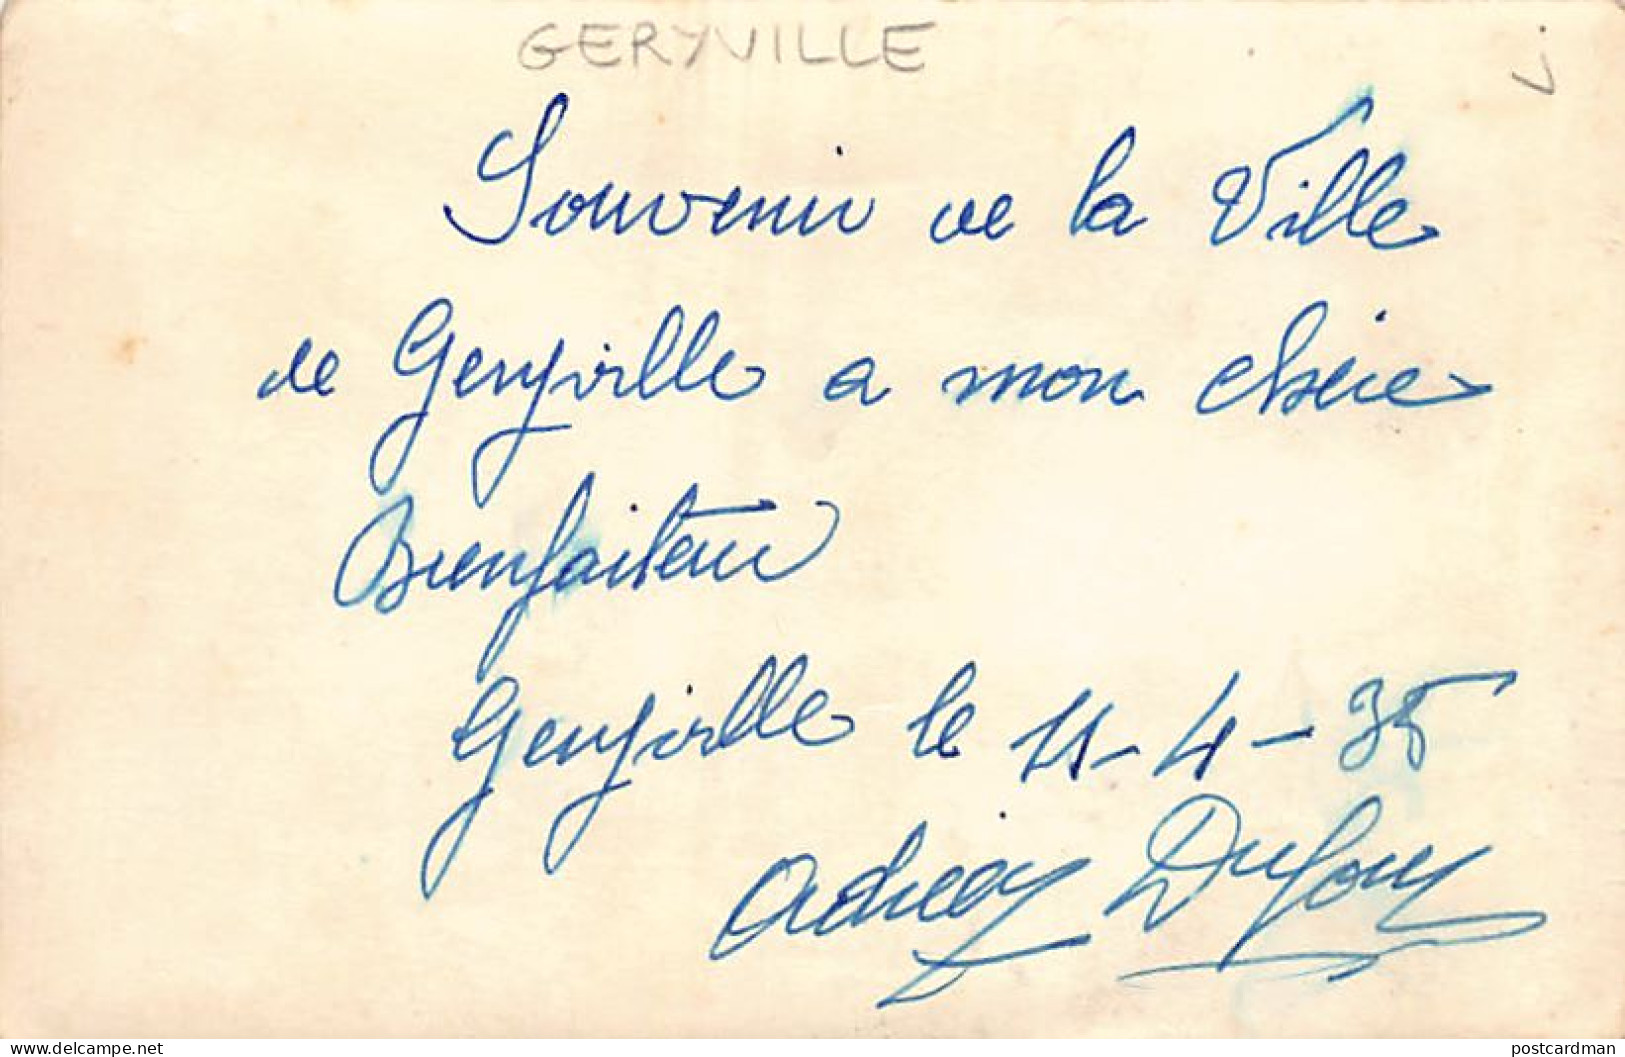 GERYVILLE J
Souvenir de la Ville
de Geryville a mon chère
Bienfaiteur
Geryville le 11-4-35
Adrien Dufour
www.delcampe.net postcardman